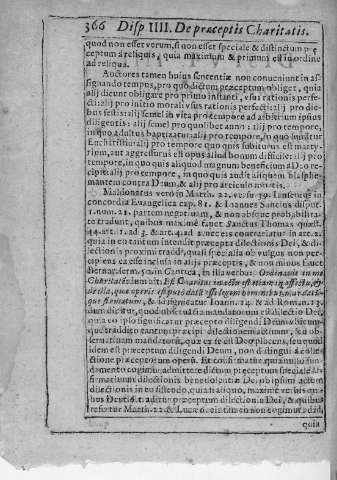 366 Disp IIII. De præceptis Charitatis.
quod non esset verum, si non esset speciale & distinctum præ
ceptum à reliquis, quia maximum & primum est in ordine
ad reliqua.
Auctores tamen huius sententiæ non conueniunt in as-
signando tempus, pro quo dictum præceptum obliget, quia
alij dicunt obligare pro primo instanti, vsus rationis perfe-
cti: alij pro initio morali vsus rationis perfecti: alij pro die-
bus festis: alij semel in vita pro tempore ad arbitrium ipsius
diligentis: alij semel pro quolibet anno: alij pro tempore,
in quo adultus baptizatur: alij pro tempore, in quo sumitur
Euchristia: alij pro tempore quo quis subiturus est marty-
rium, aut aggressurus est opus aliud bonum difficile: alij pro
tempore, in quo quis aliquod magnum beneficium à Deo re-
cipit: alij pro tempore, in quo quis audit aliquem blasphe-
mantem contra Deum, & alij pro articulo mortis.
Maldonatus verò in Matth. 22. ver. 39. Iansenius in
concordia Euangelica cap. 81. & Ioannes Sanctius disput.
1. num. 21. partem negatiuam, & non absque probabilita-
te tradunt, quibus maximè fauet Sanctus Thomas quæst.
44. art. 1. ad 3. & art. 4. ad
in ea tantum intensitt præcepta dilectionis Dei, & di-
lectionis proximi tradi, quasi specialia ob vulgus non per-
cipiens ea esse inclusa in alijs præceptis, & non minus fauet
Bernar. serm. 50. in Cantica, in illa verba: Ordinauit in me
Charitatem ait: Est Charitas in actu est etiam in affectu, &
de illa, quæ operis est puto datam esse legem hominibus, mandatum-
que & ad significatur Ioann. 14. & ad Roman. 13.
dum dicitur, quod obseruatio mandatorum est dilectio Dei,
quia eo ipso significatur præcepto diligendi Deum
que traditio tantum præcipi dilectionem actiuam, & ob-
seruationem mandatorum, quæ ex se est Deo placens, seu quod
idem est præceptum diligendi Deum, non distingui à colle-
ctione præceptorum operis. Et confirmatur quia nullo fun-
damento cogimur admittere dictum præceptum speciale af-
firmatiuum dilectionis beneuolentiæ Dei ob ipsum actum
dilectionis in eo sistendo, quia ratione, maximè verbis qui-
bus Deut. 6. traditur præceptum dilectionis Dei, & quibus
refertur Matth. 22. & Lucæ 6. etiam non cogimur, eò id,
quia